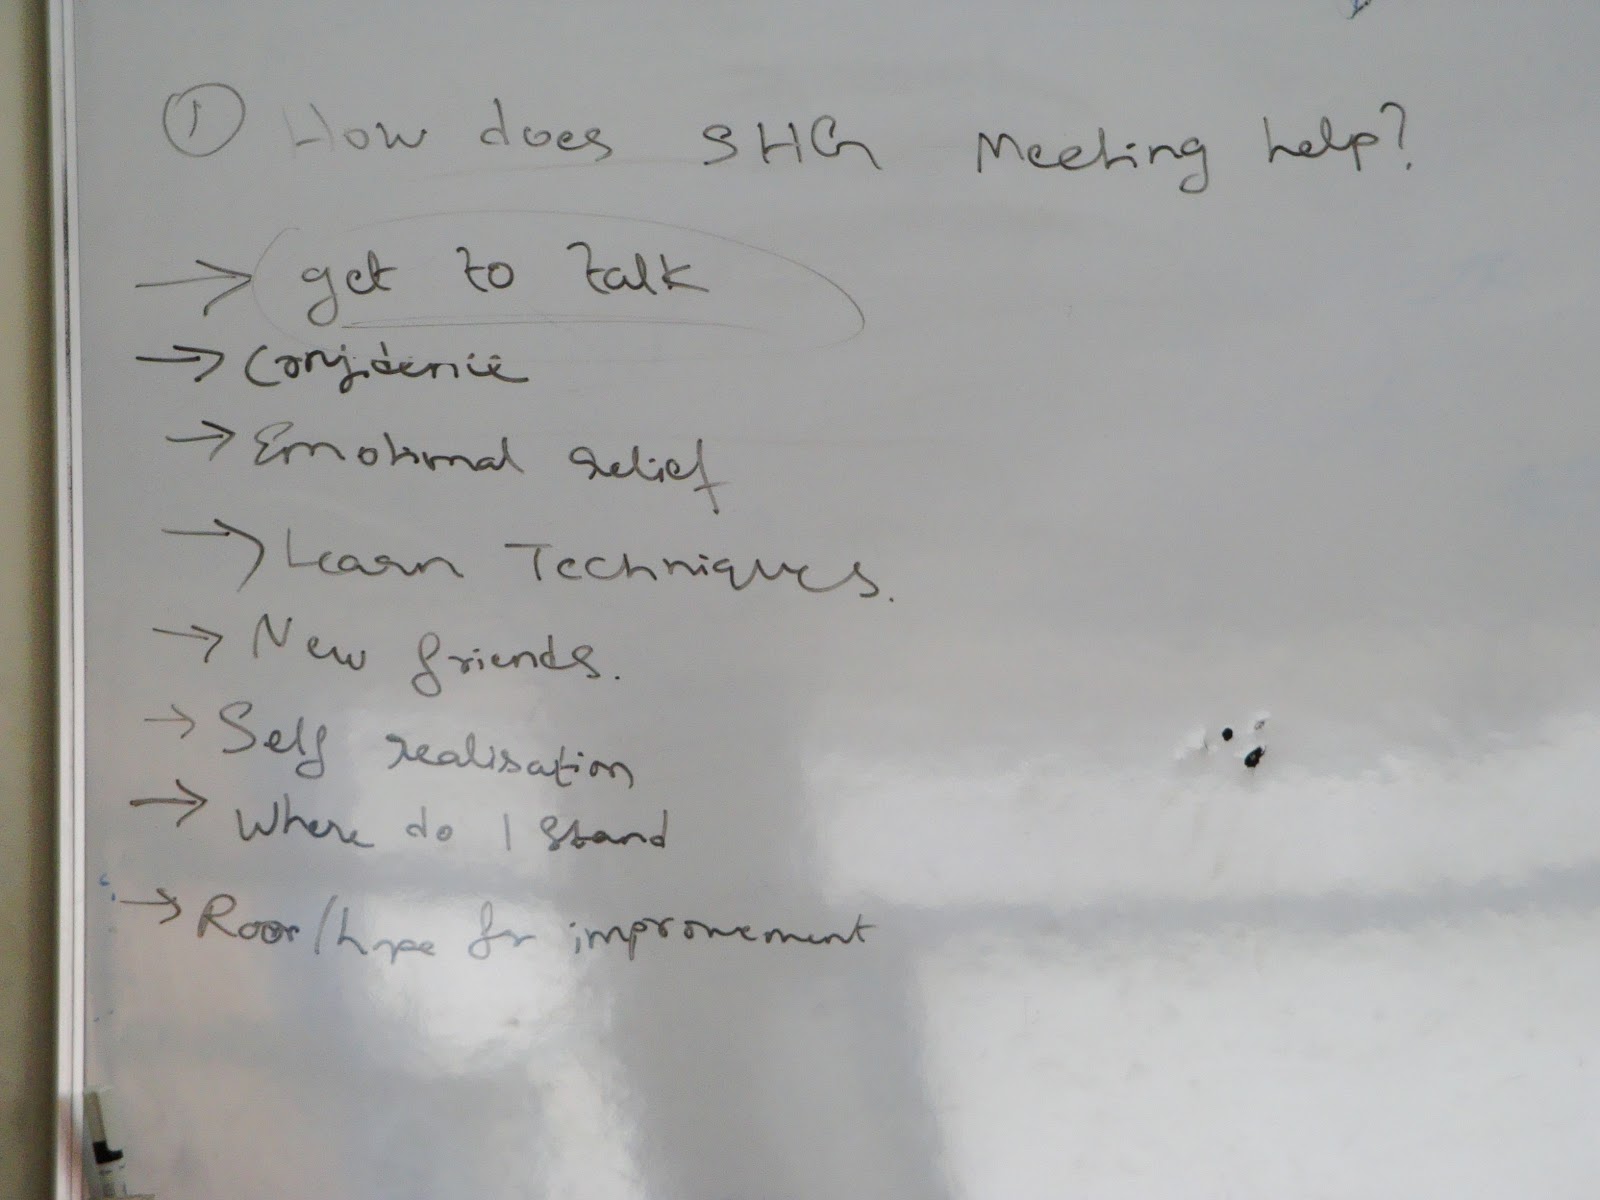 ① How does SHG Meeting help?
→ get to talk
→ Confidence
→ Emotional relief
→ Learn Techniques.
→ New friends.
→ Self realisation
→ Where do I stand
→ Room/hope for improvement